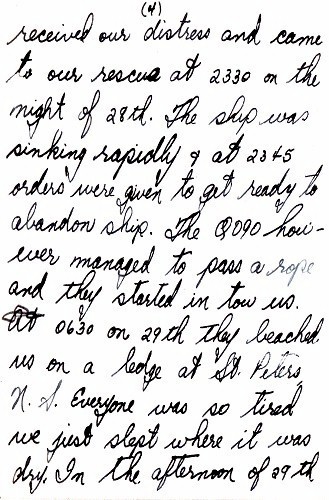 (4)
received our distress and came
to our rescue at 2330 on the
night of 28th. The ship was
sinking rapidly & at 2345
orders were given to get ready to
abandon ship. The Q090 how-
ever managed to pass a rope
and they started in tow us.
At 0630 on 29th they beached
us on a ledge at St. Peters,
N. S. Everyone was so tired
we just slept where it was
dry. In the afternoon of 29th